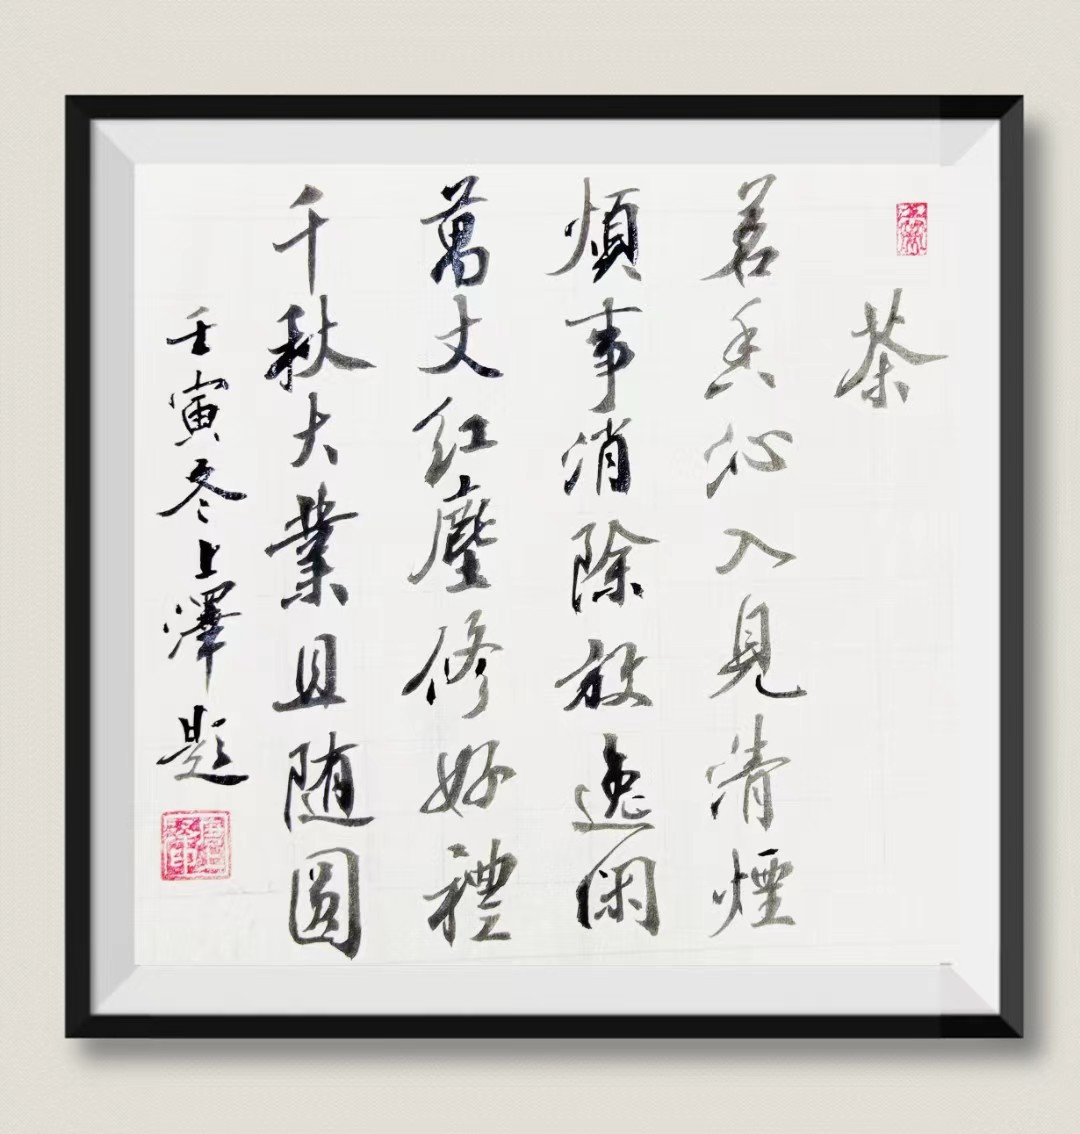 茶
茗香沁入見清煙
煩事消除放逸闲
萬丈红塵修好禮
千秋大業且随圓
壬寅冬上澤題